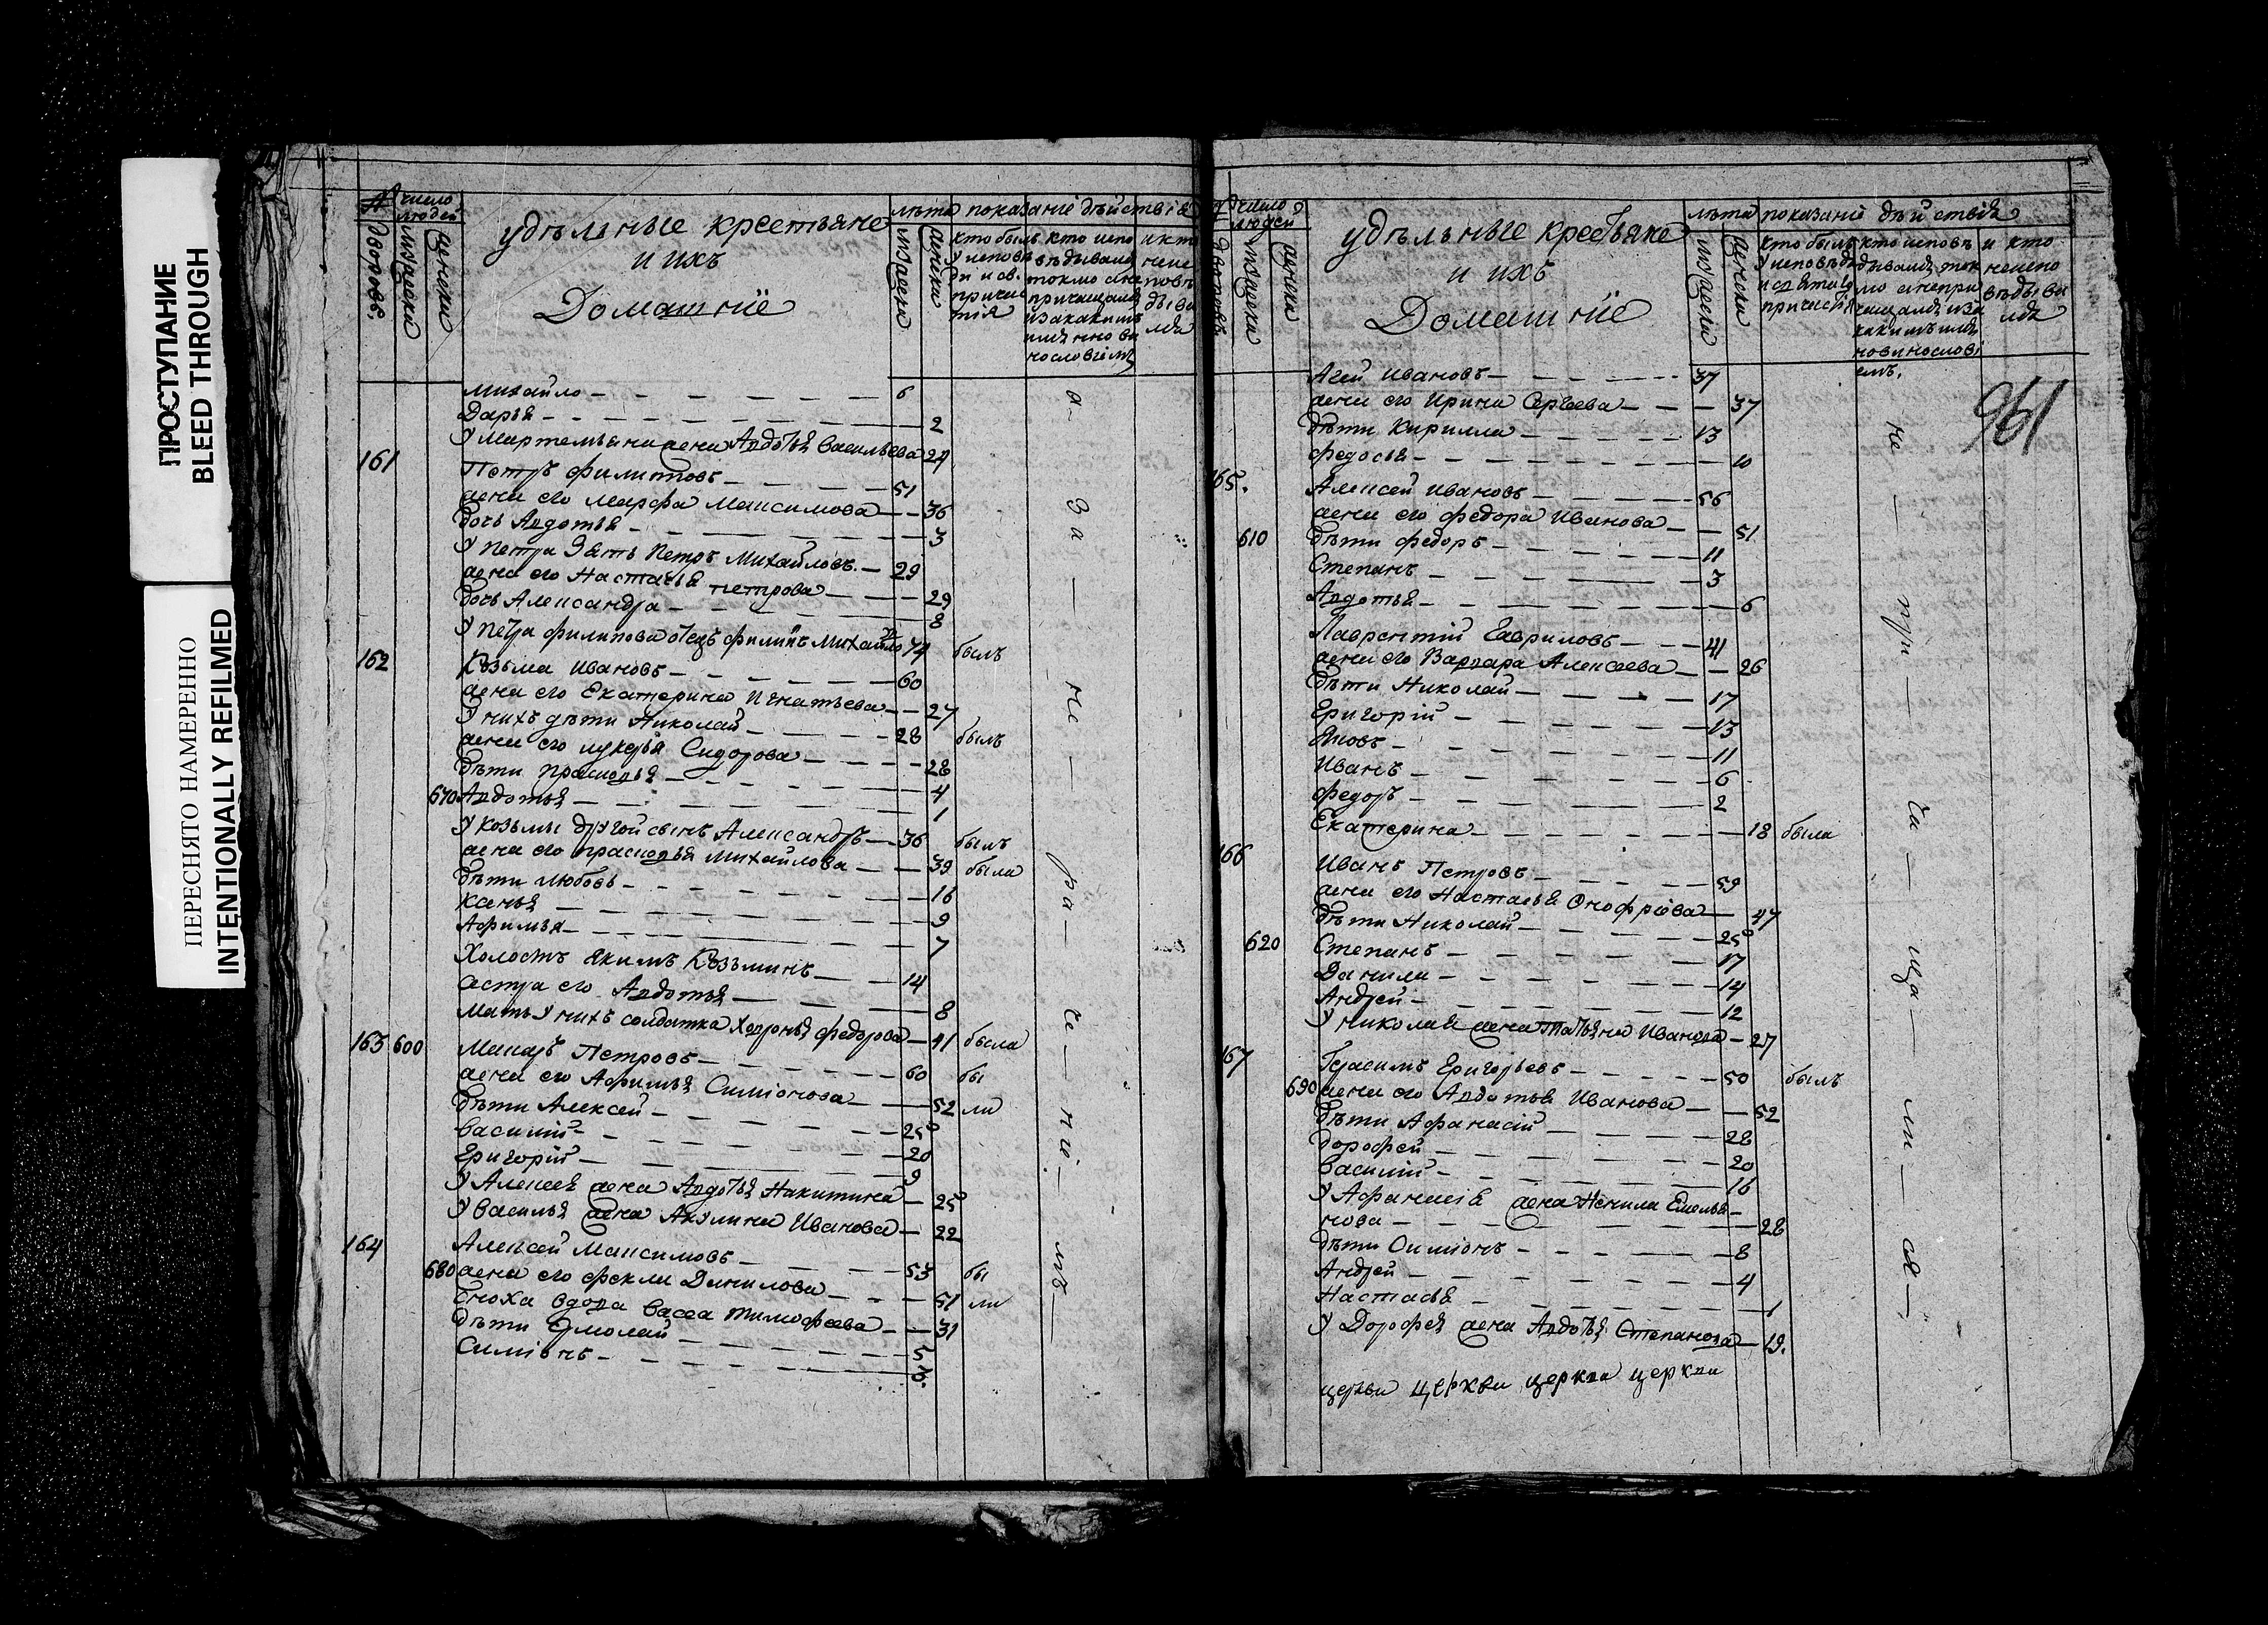 ПРОСТУПАНИЕ
BLEED THROUGH
ПЕРЕСНЯТО НАМЕРЕННО
INTENTIONALLY REFILMED
№ дворовъ
число людей
мужеска
женска
удѣльные крестьяне
и ихъ
Домашнiе
лѣта
мужеска
женска
показанiе дѣйствiя
кто былъ у исповѣди и св. причастiя
кто исповѣдывался токмо а не причащался и за какимъ
винословiемъ
и кто не исповѣдывался
Михайло 6
Дарья 2
У Мартемьяна жена Авдотья Васильева 24
161 Петръ Филиповъ 51
жена его Марфа Максимова 36
дочь Авдотья 3
У Петра Зять Петръ Михайловъ 29
жена его Настасья Петрова 29
дочь Александра 8
У Петра Филипова отецъ Филипъ Михайловъ 74 былъ
162 Козьма Ивановъ 60
жена его Екатерина Игнатьева 27
У нихъ дѣти Николай 28 былъ
жена его Лукерья Сидорова 28
дѣти Прасковья 4
670 Авдотья 1
У Козьмы другой сынъ Александръ 36 былъ
жена его Прасковья Михайлова 39 была
дѣти Любовь 16
9
Афимья 7
Холостъ Якимъ Козьминъ 14
сестра его Авдотья 8
Мать у нихъ солдатка Федорова 41 была
163 600 Макаръ Петровъ 60 бы
жена его Афимья Симiонова 52 ли
дѣти Алексей 25
Василiй 20
Григорiй 9
У Алексея жена Авдотья Никитина 25
У Василья жена Акулина Иванова 22
164 Алексей Максимовъ 53 бы
680 жена его Фекла Данилова 51 ли
Сноха вдова Васса Тимофеева 31
дѣти Ермолай 5
Симiонъ 3.
а За не ра че нiемъ
дворовъ
число людей
мужеска
женска
удѣльные крестьяне
и ихъ
Домашнiе
лѣта
мужеска
женска
показанiе дѣйствiя
кто былъ у исповѣди и святаго причастiя
кто исповѣдывался токмо а не причащался и за какимъ
винословiемъ.
и кто не исповѣдывался
961
Агей Ивановъ 37
жена его Ирина Сергѣева 37
дѣти Кирилла 13
Федосья 10
165. Алексей Ивановъ 56
жена его Федора Иванова 51
610 дѣти Федоръ 11
Степанъ 3
Авдотья 6
Лаврентiй Гавриловъ 41
жена его Варвара Алексеева 26
дѣти Николай 17
Григорiй 13
Яковъ 11
Иванъ 6
Федоръ 2
Екатерина 18 была
166 Иванъ Петровъ 59
жена его Настасья Онофрiева 47
дѣти Николай 25
620 Степанъ 17
Данила 14
Андрей 12
У Николая жена Татьяна Иванова 27
167 Герасимъ Григорьевъ 50 былъ
690 жена его Авдотья Иванова 52
дѣти Афанасiй 28
Дорофей 20
Василiй 16
У Афанасiя жена Ненила Емелья-
нова 28
дѣти Симiонъ 8
Андрей 4
Настасья 1
У Дорофея жена Авдотья Степанова 19.
не при ча ща ли ся
церкви церкви церкви церкви